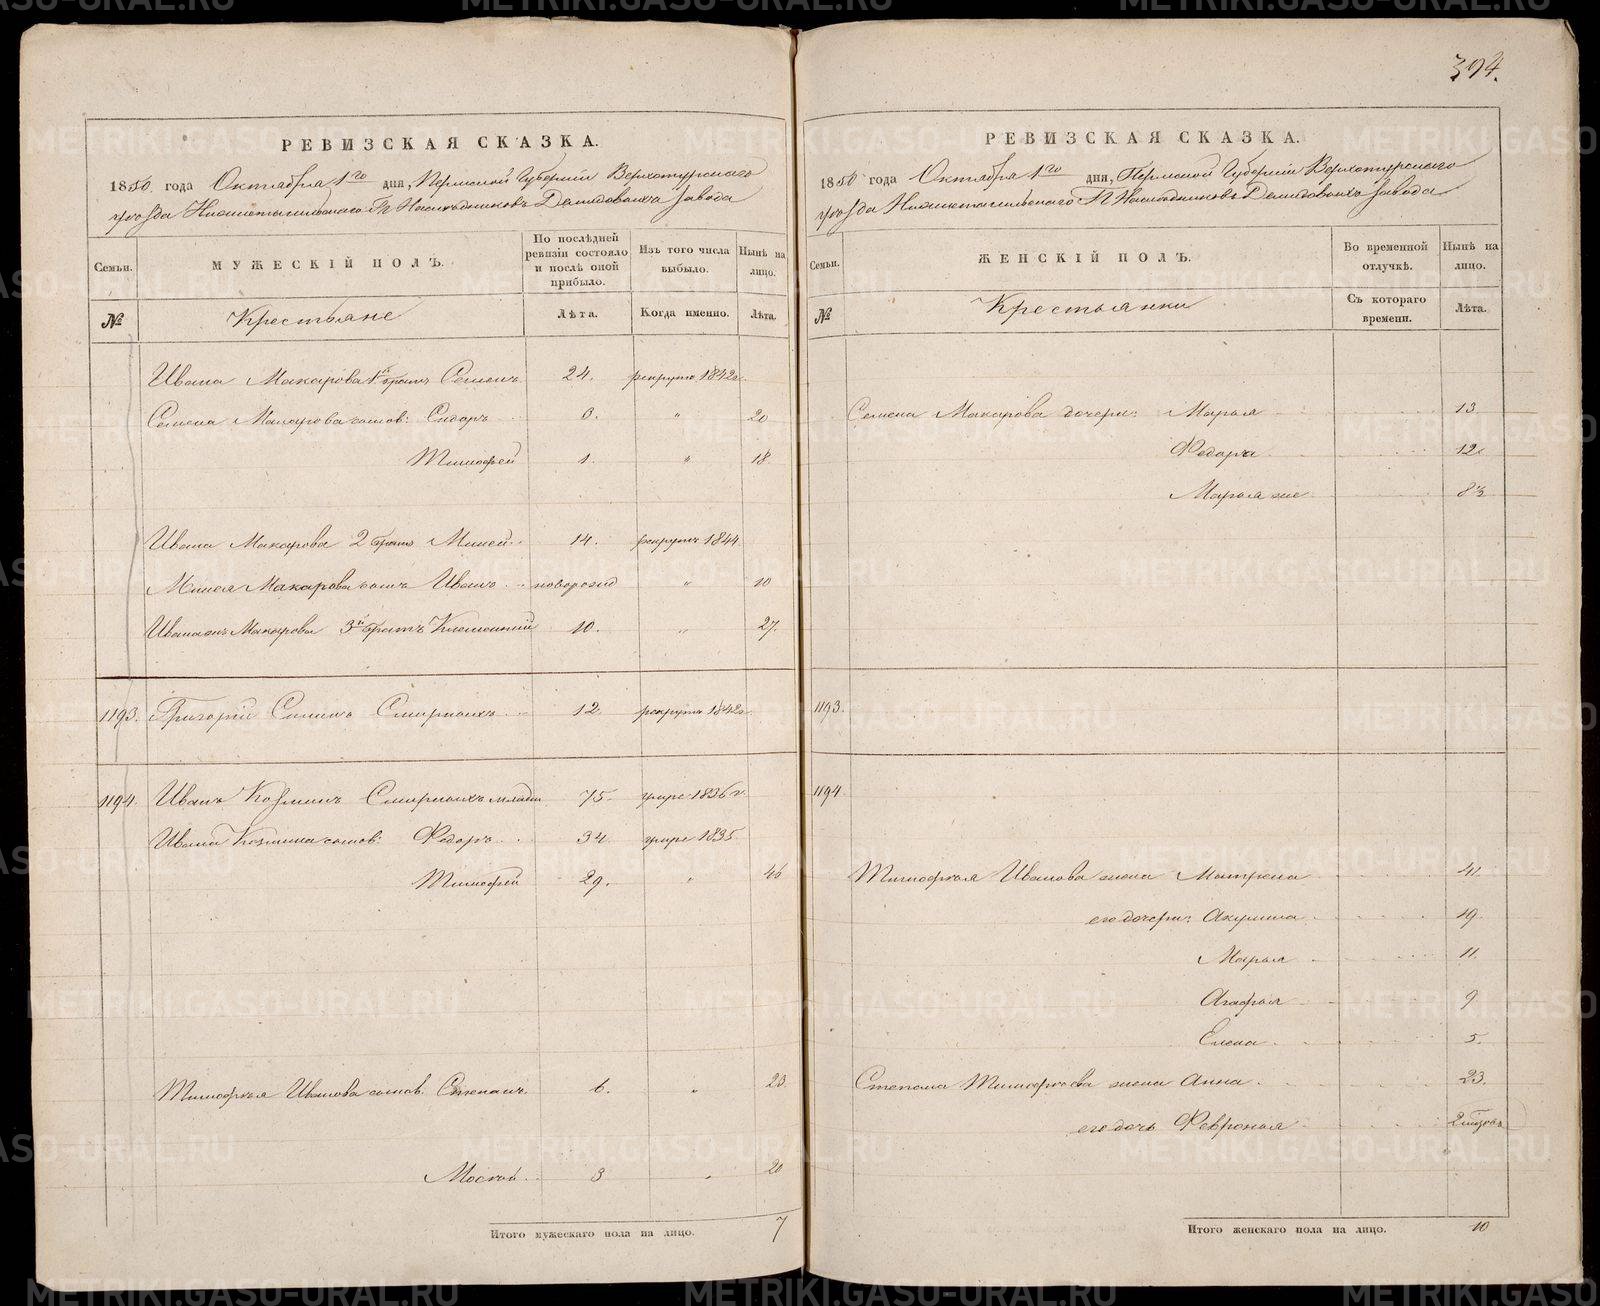 РЕВИЗСКАЯ СКАЗКА.
1850 года Октября 1го дня, Пермской Губернiи Верхотурскаго
уѣзда Нижнетагильскаго Гг. Наслѣдниковъ Демидовыхъ завода
Семьи.
МУЖЕСКІЙ ПОЛЪ.
По послѣдней ревизіи состояло и послѣ оной прибыло.
Изъ того числа выбыло.
Нынѣ на лицо.
№
Крестьяне
Лѣта.
Когда именно.
Лѣта.
Ивана Макарова 1й братъ Семенъ 24. рекрутъ 1842г.
Семена Макарова сынов: Сидоръ 6. " 20
Тимофей 1. " 18
Ивана Макарова 2 братъ Мисей 14. рекрутъ 1844
Мисея Макарова сынъ Иванъ новорожд " 10
Ивана Макарова 3й братъ Климентий 10. " 27.
1193. Григорій Смирныхъ 12 рекрутъ 1842г
1194. Иванъ Козминъ Смирныхъ младш 75. умре 1836 г.
Ивана Козмина сынов: Федоръ 34 умре 1835
Тимофей 29. " 46
Тимофѣя Иванова сынов: Степанъ 6. " 23
Мосей 3 " 20
Итого мужескаго пола на лицо. 7
394.
РЕВИЗСКАЯ СКАЗКА.
1850 года Октября 1го дня, Пермской Губернiи Верхотурскаго
уѣзда Нижнетагильскаго Гг Наслѣдниковъ Демидовыхъ завода
Семьи.
ЖЕНСКІЙ ПОЛЪ.
Во временной отлучкѣ.
Нынѣ на лицо.
№
Крестьянки
Съ котораго времени.
Лѣта.
Семена Макарова дочери: Марья 13
Федора 12
Марья же 8½
1193.
1194
Тимофѣя Иванова жена Матрена 41.
его дочери: Акулина 19.
Марья 11.
Агафья 9
Елена 5.
Степана Тимофѣева жена Анна 23.
его дочь Февронья
Итого женскаго пола на лицо. 10
METRIKI.GASO-URAL.RU